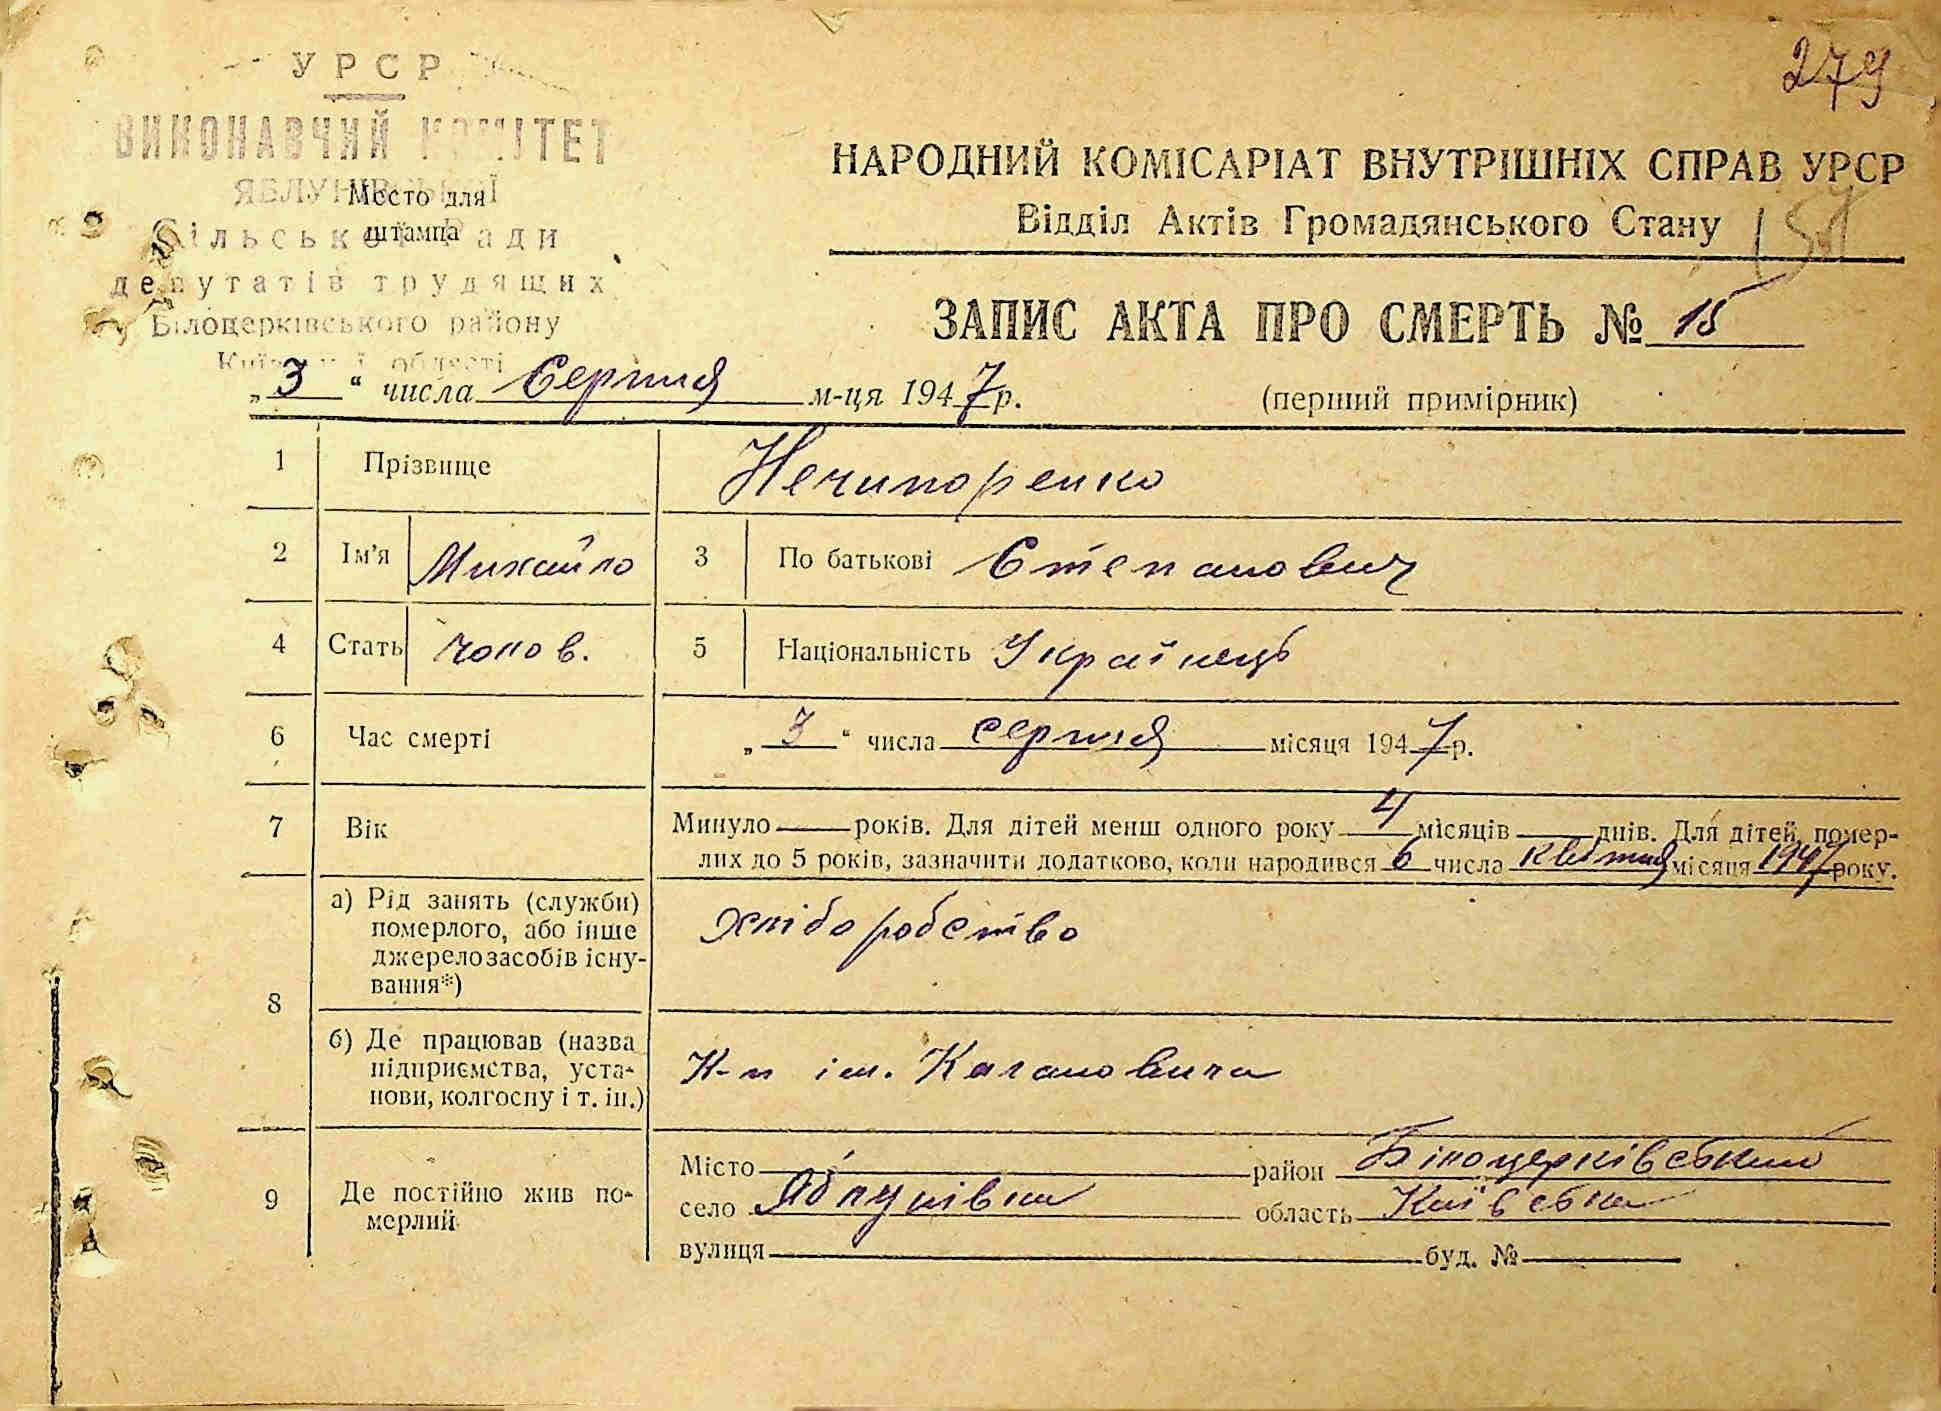 279
УРСР
ВИКОНАВЧИЙ КОМІТЕТ
ЯБЛУНІВСЬКОЇ
Место для
штампа
Сільської Ради
депутатів трудящих
Білоцерківського району
Київської області
НАРОДНИЙ КОМІСАРІАТ ВНУТРІШНІХ СПРАВ УРСР
Відділ Актів Громадянського Стану
ЗАПИС АКТА ПРО СМЕРТЬ № 15
„3“ числа Серпня м-ця 1947 р.
(перший примірник)
1 Прізвище Нечипоренко
2 Ім'я Михайло 3 По батькові Степанович
4 Стать чолов. 5 Національність Українець
6 Час смерті „3“ числа серпня місяця 1947 р.
7 Вік Минуло — років. Для дітей менш одного року 4 місяців — днів. Для дітей, помер-
лих до 5 років, зазначити додатково, коли народився 6 числа квітня місяця 1947 року.
8 а) Рід занять (служби)
померлого, або інше
джерело засобів існу-
вання*)
хліборобство
б) Де працював (назва
підприємства, уста-
нови, колгоспу і т. ін.)
К-п ім. Кагановича
9 Де постійно жив по-
мерлий
Місто — район Білоцерківський
село Яблунівка область Київська
вулиця — буд. № —